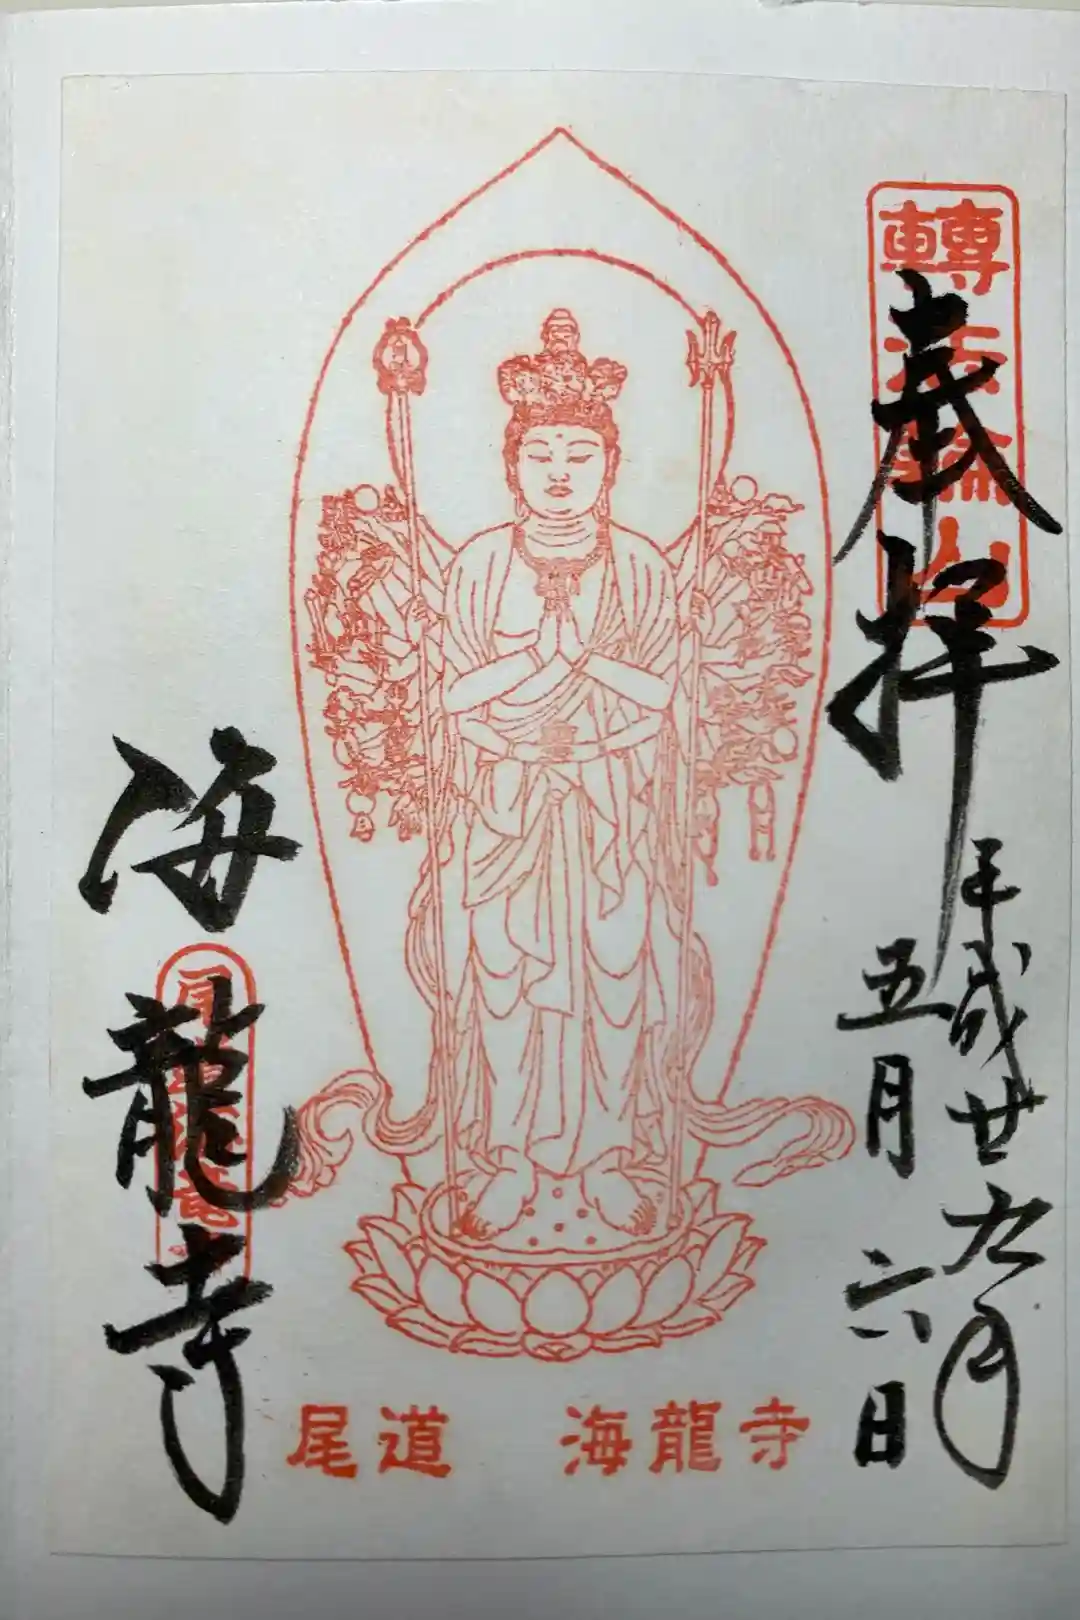 轉法輪山
奉拝
平成廿九年
五月六日
海龍寺
尾道 海龍寺